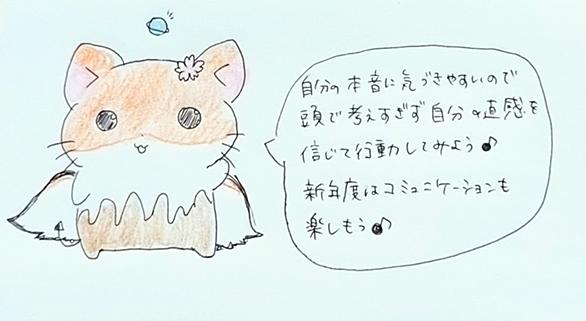 自分の本音に気づきやすいので
頭で考えすぎず自分の直感を
信じて行動してみよう♪
新年度はコミュニケーションも
楽しもう♪